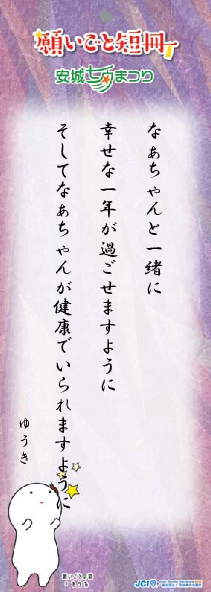 願いごと短冊
安城七夕まつり
なあちゃんと一緒に
幸せな一年が過ごせますように
そしてなあちゃんが健康でいられますように
ゆうき
JCI